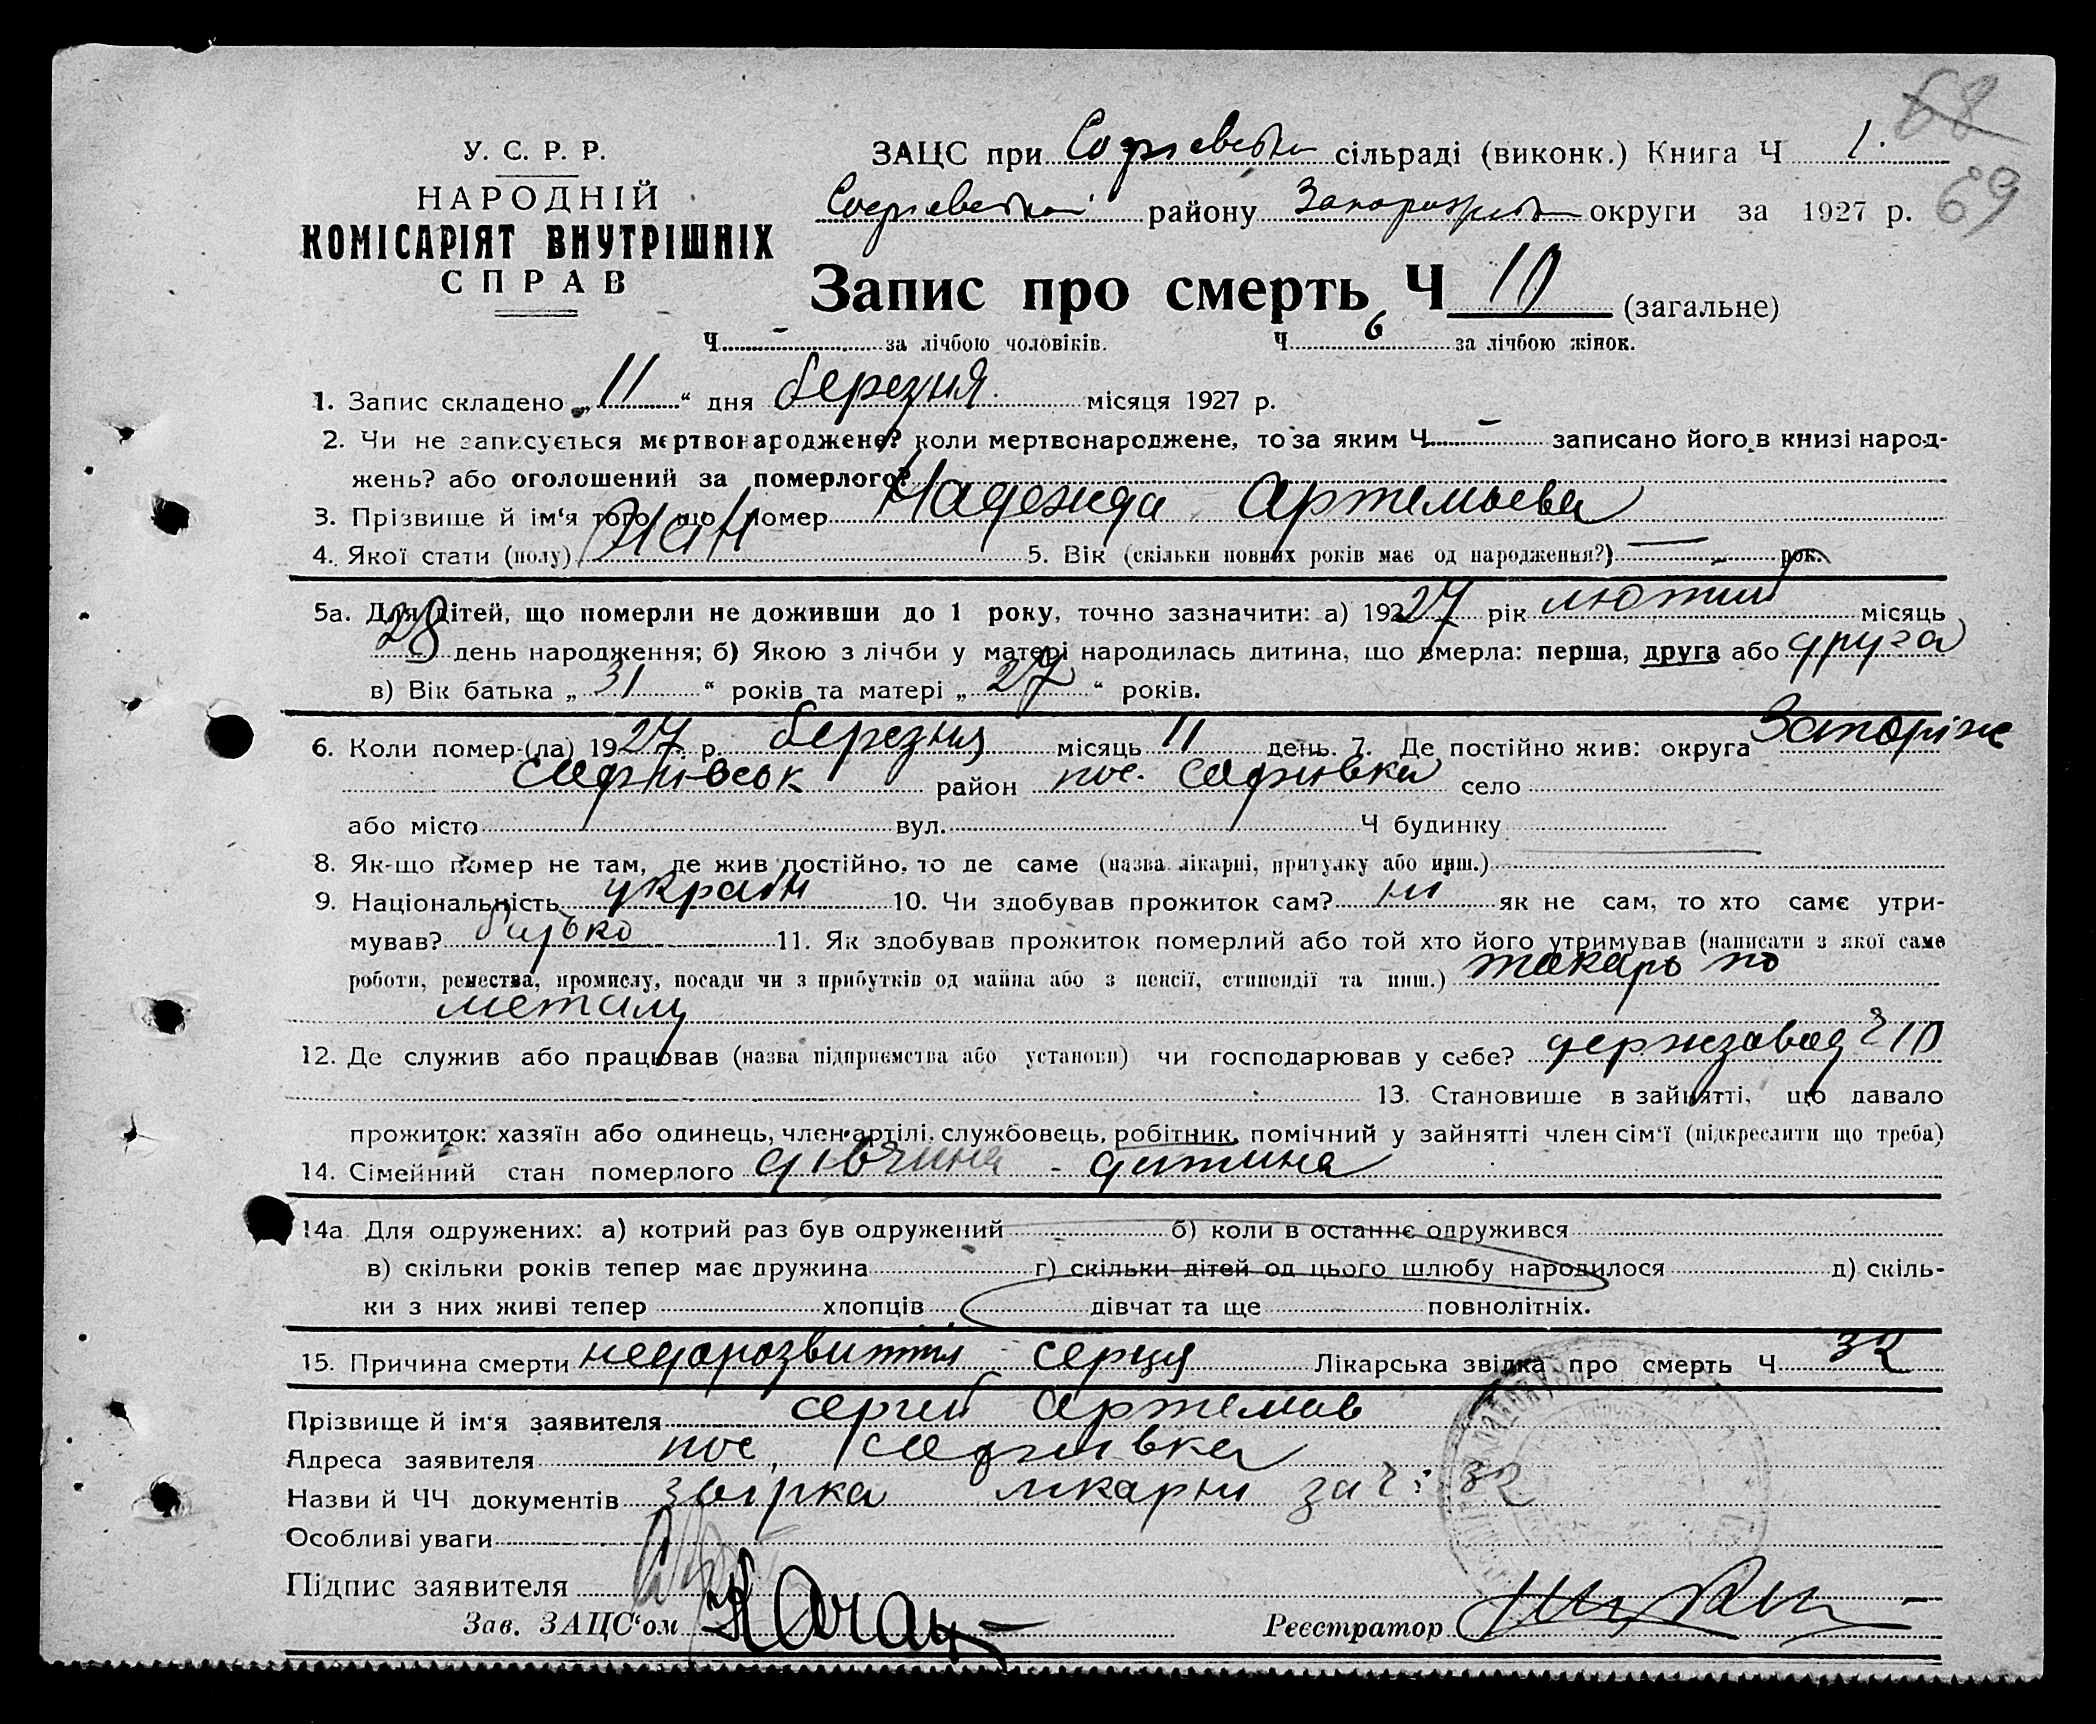 68
69
У. С. Р. Р.
НАРОДНІЙ
КОМІСАРІЯТ ВНУТРІШНІХ
СПРАВ
ЗАЦС при Софіевській сільраді (виконк.) Книга Ч 1.
Софіевської району округи за 1927 р.
Запис про смерть Ч 10 (загальне)
Ч - за лічбою чоловіків. Ч 6 за лічбою жінок.
1. Запис складено „11“ дня березня місяця 1927 р.
2. Чи не записується мертвонароджене? коли мертвонароджене, то за яким Ч - записано його в книзі народ-
жень? або оголошений за померлого?
3. Прізвище й ім‘я того, що помер Надежда Артемьева
4. Якої стати (полу) 5. Вік (скільки повних років має од народження?) — рок.
5а. Для дітей, що померли не доживши до 1 року, точно зазначити: а) 1927 рік лютий місяць
28 день народження; б) Якою з лічби у матері народилась дитина, що вмерла: перша, друга або друга
в) Вік батька „31“ років та матері „27“ років.
6. Коли помер-(ла) 1927 р. березня місяць 11 день. 7. Де постійно жив: округа Запоріж
софиівськ район пос. софиівка село
або місто вул. Ч будинку
8. Як-що помер не там, де жив постійно, то де саме (назва лікарні, притулку або инш.)
9. Національність україн 10. Чи здобував прожиток сам? ні як не сам, то хто саме утри-
мував? батько 11. Як здобував прожиток померлий або той хто його утримував (написати з якої саме
роботи, ремества, промислу, посади чи з прибутків од майна або з пенсії, стипендії та инш.) токарь по
металу
12. Де служив або працював (назва підприємства або установи) чи господарював у себе? держзавод Ч 10
13. Становище в зайнятті, що давало
прожиток: хазяїн або одинець, член артілі, службовець, робітник, помічний у зайнятті член сім‘ї (підкреслити що треба)
14. Сімейний стан померлого дівчина - дитина
14а Для одружених: а) котрий раз був одружений б) коли в останнє одружився
в) скільки років тепер має дружина г) скільки дітей од цього шлюбу народилося д) скіль-
ки з них живі тепер хлопців дівчат та ще повнолітніх.
15. Причина смерти недорозвиття серця Лікарська звідка про смерть Ч 32
Прізвище й ім‘я заявителя сергей Артемов
Адреса заявителя пос. софиівка
Назви й ЧЧ документів звірка лікарни за Ч: 32
Особливі уваги
Підпис заявителя
Зав. ЗАЦС‘ом
Реєстратор